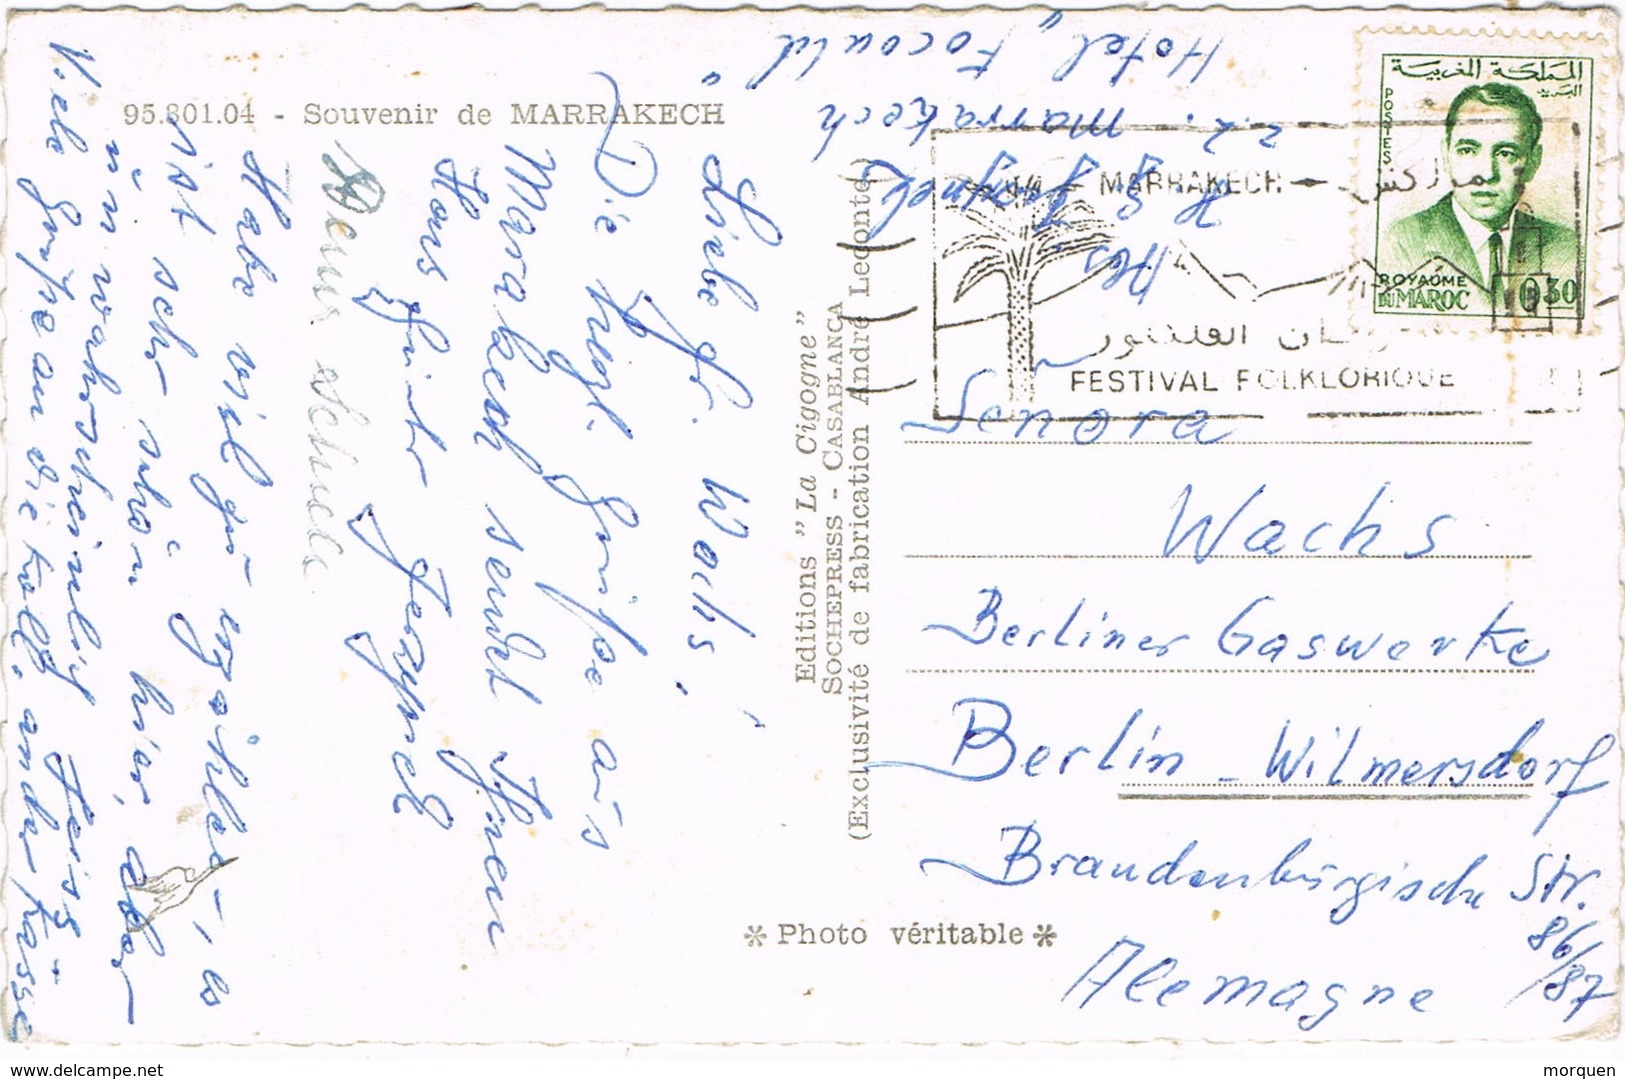 95.801.04 - Souvenir de MARRAKECH
Liebe Fr. Wachs,
Die herzl. Grüße aus
Marakech sendet Ihnen
Hans Günter
Habe viel zu erzählen, es
ist sehr schön hier, aber
unwahrscheinlich heiss.
Viele Grüße an die Koll. an der Kasse
Editions "La Cigogne"
SOCHEPRESS - CASABLANCA
(Exclusivité de fabrication André Leconte)
* Photo véritable *
Abs
H. G.
z.Z. Marrakech
Hotel „Focould"
MARRAKECH
مراكش
FESTIVAL FOLKLORIQUE
المملكة المغربية
البريد
POSTES
ROYAUME
DU MAROC
0.30
Señora
Wachs
Berliner Gaswerke
Berlin - Wilmersdorf
Brandenburgische Str.
86/87
Alemagne
delcampe.net
morquen